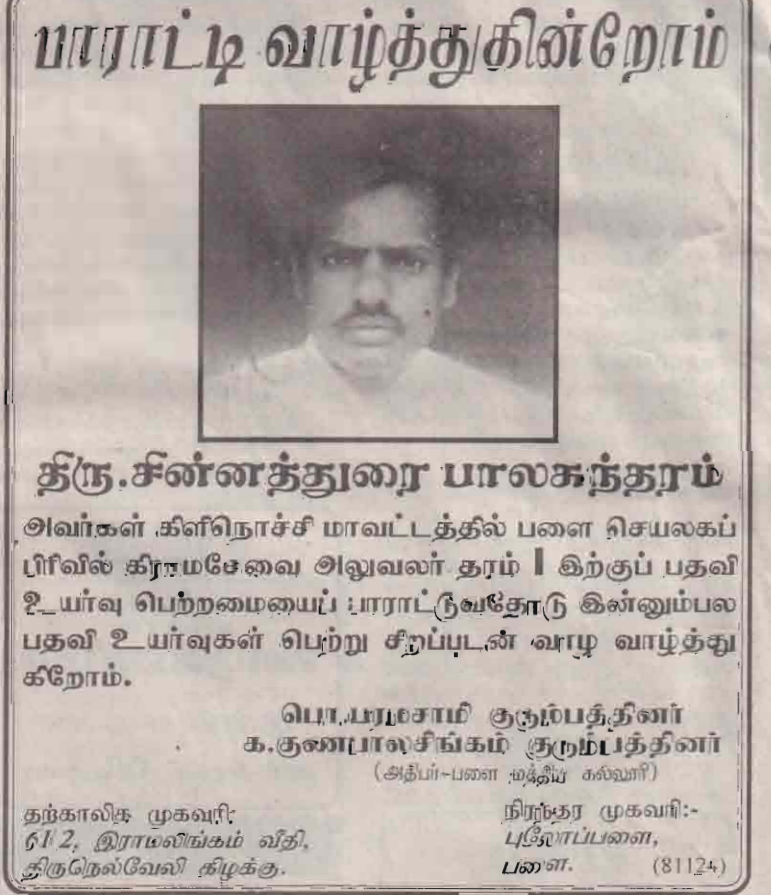 பாராட்டி வாழ்த்துகின்றோம்
திரு.சின்னத்துரை பாலசுந்தரம்
அவர்கள் கிளிநொச்சி மாவட்டத்தில் பளை செயலகப்
பிரிவில் கிராமசேவை அலுவலர் தரம் I இற்குப் பதவி
உயர்வு பெற்றமையைப் பாராட்டுவதோடு இன்னும்பல
பதவி உயர்வுகள் பெற்று சிறப்புடன் வாழ வாழ்த்து
கிறோம்.
பொ.பரமசாமி குடும்பத்தினர்
க.குணபாலசிங்கம் குடும்பத்தினர்
(அதிபர்-பளை மத்திய கல்லூரி)
தற்காலிக முகவரி:
61/2, இராமலிங்கம் வீதி,
திருநெல்வேலி கிழக்கு.
நிரந்தர முகவரி:-
புலோப்பளை,
பளை. (81124)